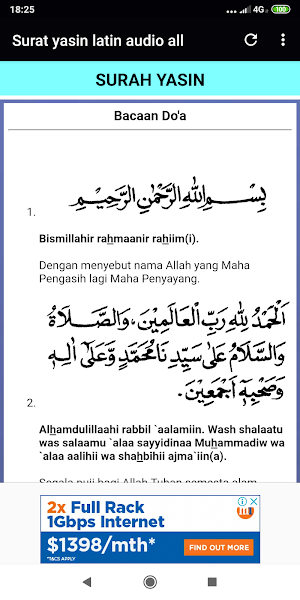 18:25
4G
100
Surat yasin latin audio all
SURAH YASIN
Bacaan Do'a
بِسْمِ اللهِ الرَّحْمٰنِ الرَّحِيْمِ
1.
Bismillahir rahmaanir rahiim(i).
Dengan menyebut nama Allah yang Maha
Pengasih lagi Maha Penyayang.
اَلْحَمْدُ لِلّٰهِ رَبِّ الْعَالَمِيْنَ، وَالصَّلَاةُ
وَالسَّلَامُ عَلٰى سَيِّدِنَا مُحَمَّدٍ وَّعَلٰى اٰلِهٖ
وَصَحْبِهٖٓ اَجْمَعِيْنَ.
2.
Alhamdulillaahi rabbil `aalamiin. Wash shalaatu
was salaamu `alaa sayyidinaa Muhammadiw wa
`alaa aalihii wa shahbihii ajma`iin(a).
Segala puji bagi Allah Tuhan semesta alam
2x Full Rack
1Gbps Internet
$1398/mth*
*T&CS APPLY
FIND OUT MORE